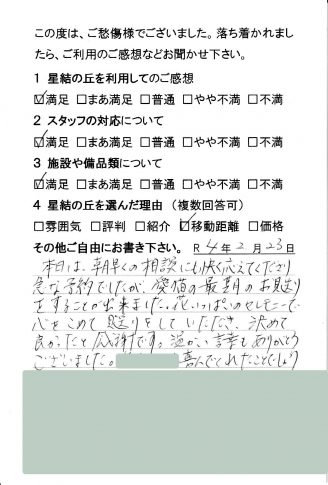 この度は、ご愁傷様でございました。落ち着かれまし
たら、ご利用のご感想などお聞かせ下さい。
1 星結の丘を利用してのご感想
☑満足 □まあ満足 □普通 □やや不満 □不満
2 スタッフの対応について
☑満足 □まあ満足 □普通 □やや不満 □不満
3 施設や備品類について
☑満足 □まあ満足 □普通 □やや不満 □不満
4 星結の丘を選んだ理由 （複数回答可）
□雰囲気 □評判 □紹介 ☑移動距離 □価格
その他ご自由にお書き下さい。 R 4年 2月 23日
本日は、朝早くの相談にも快く応えてくださり
急な予約でしたが、愛猫の最期のお見送り
をすることが出来ました。花いっぱいのセレモニーで
心をこめて見送りをしていただき、決めて
良かったと感謝です。温かい言葉もありがとう
ございました。 喜んでくれたことでしょう